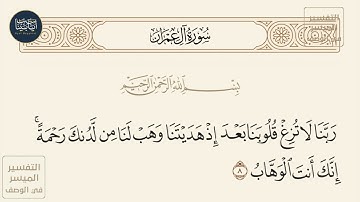 سُورَةُ آلِ عِمْرَانَ
بِسْمِ اللَّهِ الرَّحْمَٰنِ الرَّحِيمِ
رَبَّنَا لَا تُزِغْ قُلُوبَنَا بَعْدَ إِذْ هَدَيْتَنَا وَهَبْ لَنَا مِن لَّدُنكَ رَحْمَةً ۚ
إِنَّكَ أَنتَ الْوَهَّابُ ٨
التفسير
الميسر
في الوصف